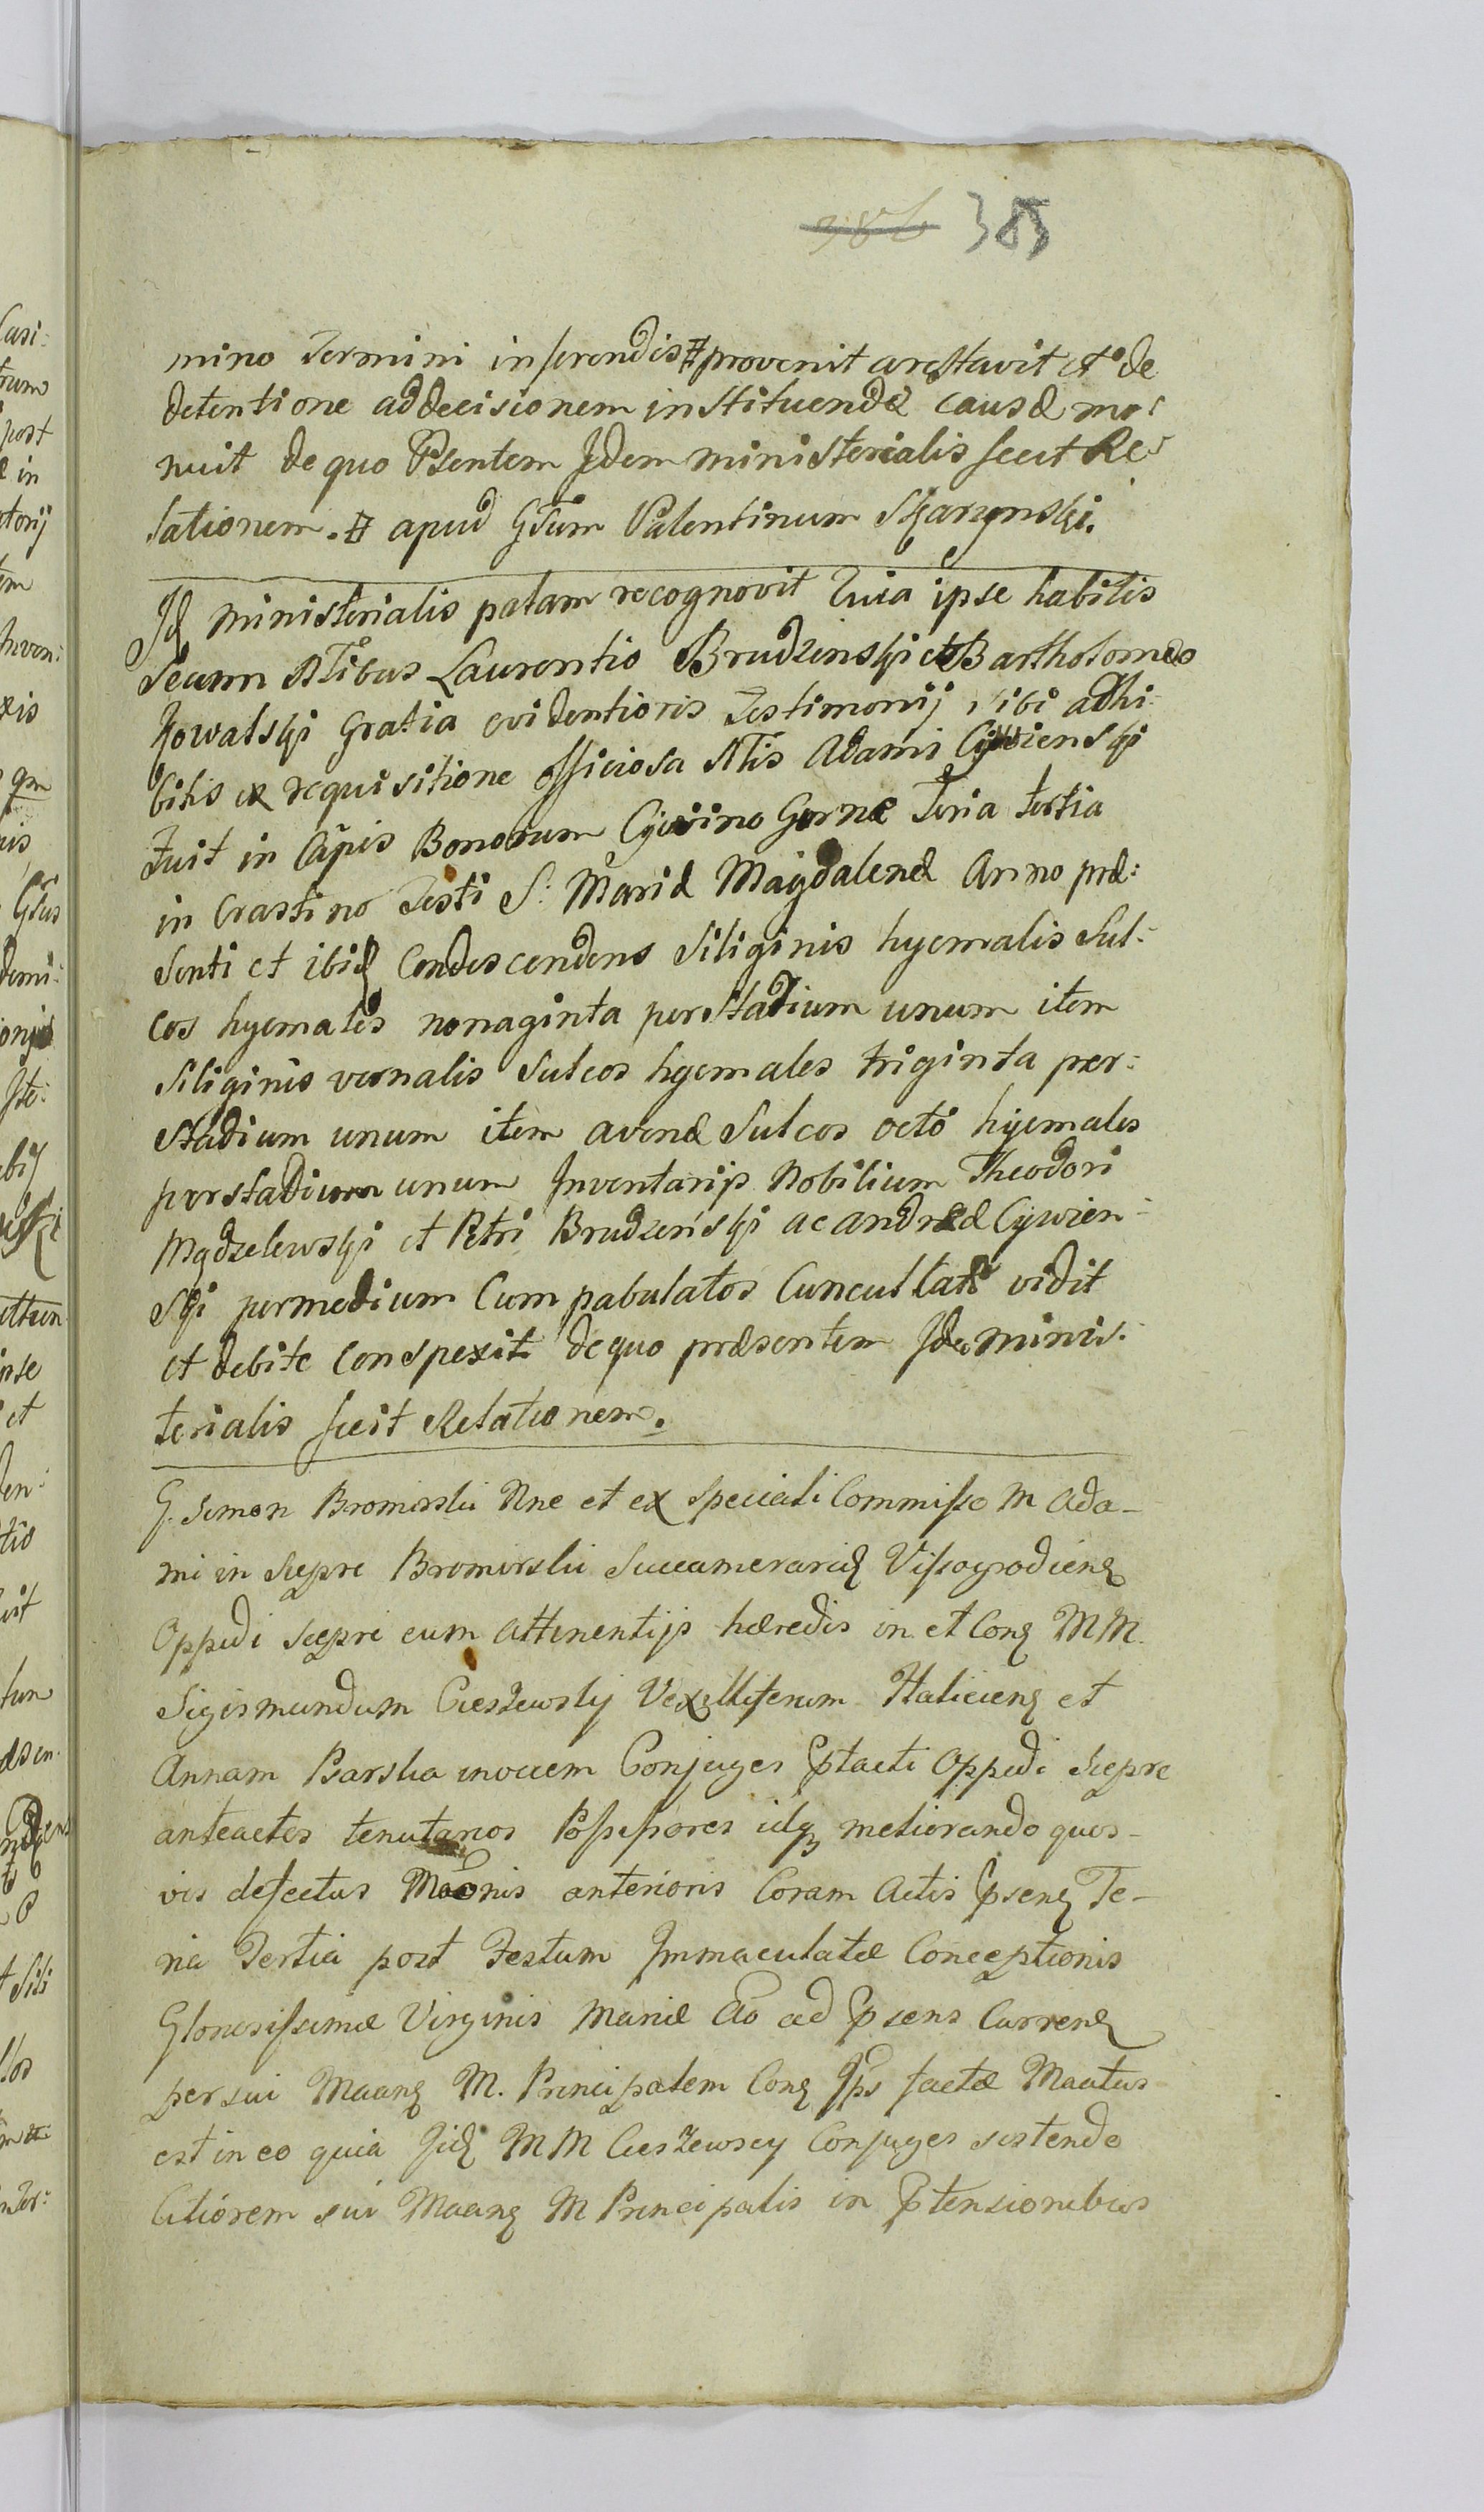 386 385
mino Termini inferendis # provenit arestavit et de
detentione ad decisionem instituendæ causæ mo:
nuit de quo Psentem Idem ministerialis fecit Re:
lationem. # apud Gsum Valentinum Skarzynski.
Id ministerialis palam recognovit Quia ipse habitis
secum Nlibus Laurentio Brudzinski et Bartholomeo
Kowalski gratia evidentioris Testimonij sibi adhi:
bitis ex requisitione officiosa Nlis Adami Cywienski
Fuit in Campis Bonorum Cywino Gorne Feria tertia
in Crastino Festi S: Mariæ Magdalenæ Anno præ:
senti et ibid Condescendens siliginis hyemalis Sul:
cos hyemales nonaginta per stadium unum item
siliginis vernalis sulcos hyemales triginta per:
stadium unum item avenæ Sulcos octo hyemales
per stadium unum Inventarijs Nobilium Theodori
Mądzelewski et Petri Brudzeński ac Andreæ Cywien:
ski per medium Cum pabulatos Cuncultatos vidit
et debite conspexit de quo præsentem Idem minis:
terialis fecit Relationem.
G. Simon Bromirski Nne et ex speciali Commisso M Ada-
mi in Siepre Bromirski Succamerarid Vissogrodiens
Oppidi Siepre cum attinentijs hæredis in et Cons MM.
Sigismundum Cieszewsky Vexilliferum Haliciens et
Annam Barska invicem Conjuges Ptacti Oppidi Siepre
anteactos tenutarios Possessores idq meliorando quos-
vis defectus Maonis anterioris Coram Actis Psens Fe-
ria Tertia post Festum Immaculatæ Conceptionis
Gloriosissimæ Virginis Mariæ Ao ad Psens Currens
per sui Maang M. Principalem Cons Ips factæ Maatus
est in eo quia Iid MM Cieszewscy Conjuges sistendo
Citiorem sui Maang M Principalis in Ptensionibus